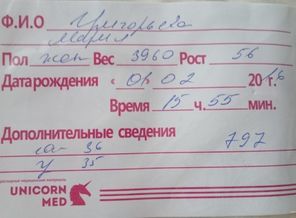 Ф.И.О Григорьева
Мария
Пол жен Вес 3960 Рост 56
Дата рождения « 01 02 2016
Время 15 ч. 55 мин.
Дополнительные сведения
ог 36 797
г 35
UNICORN
MED